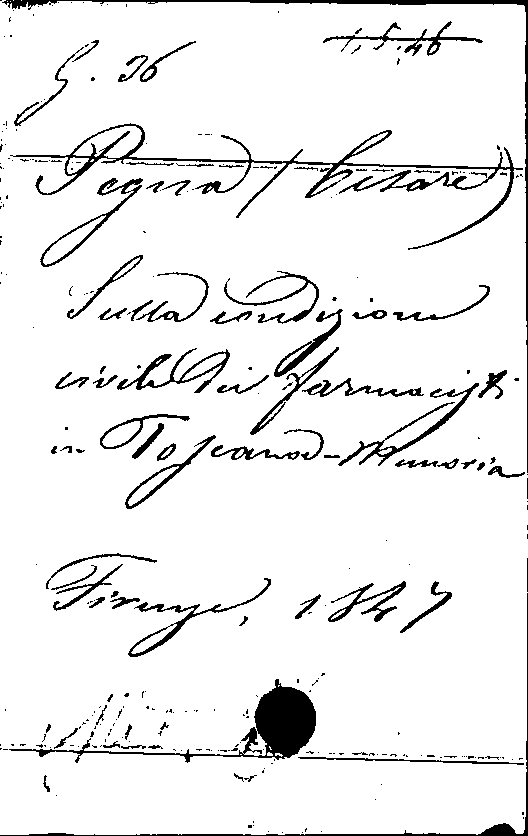 G. 36
1.5.46
Pegna (Cesare)
Sulla condizione
civile dei farmacisti
in Toscana - Memoria
Firenze, 1847